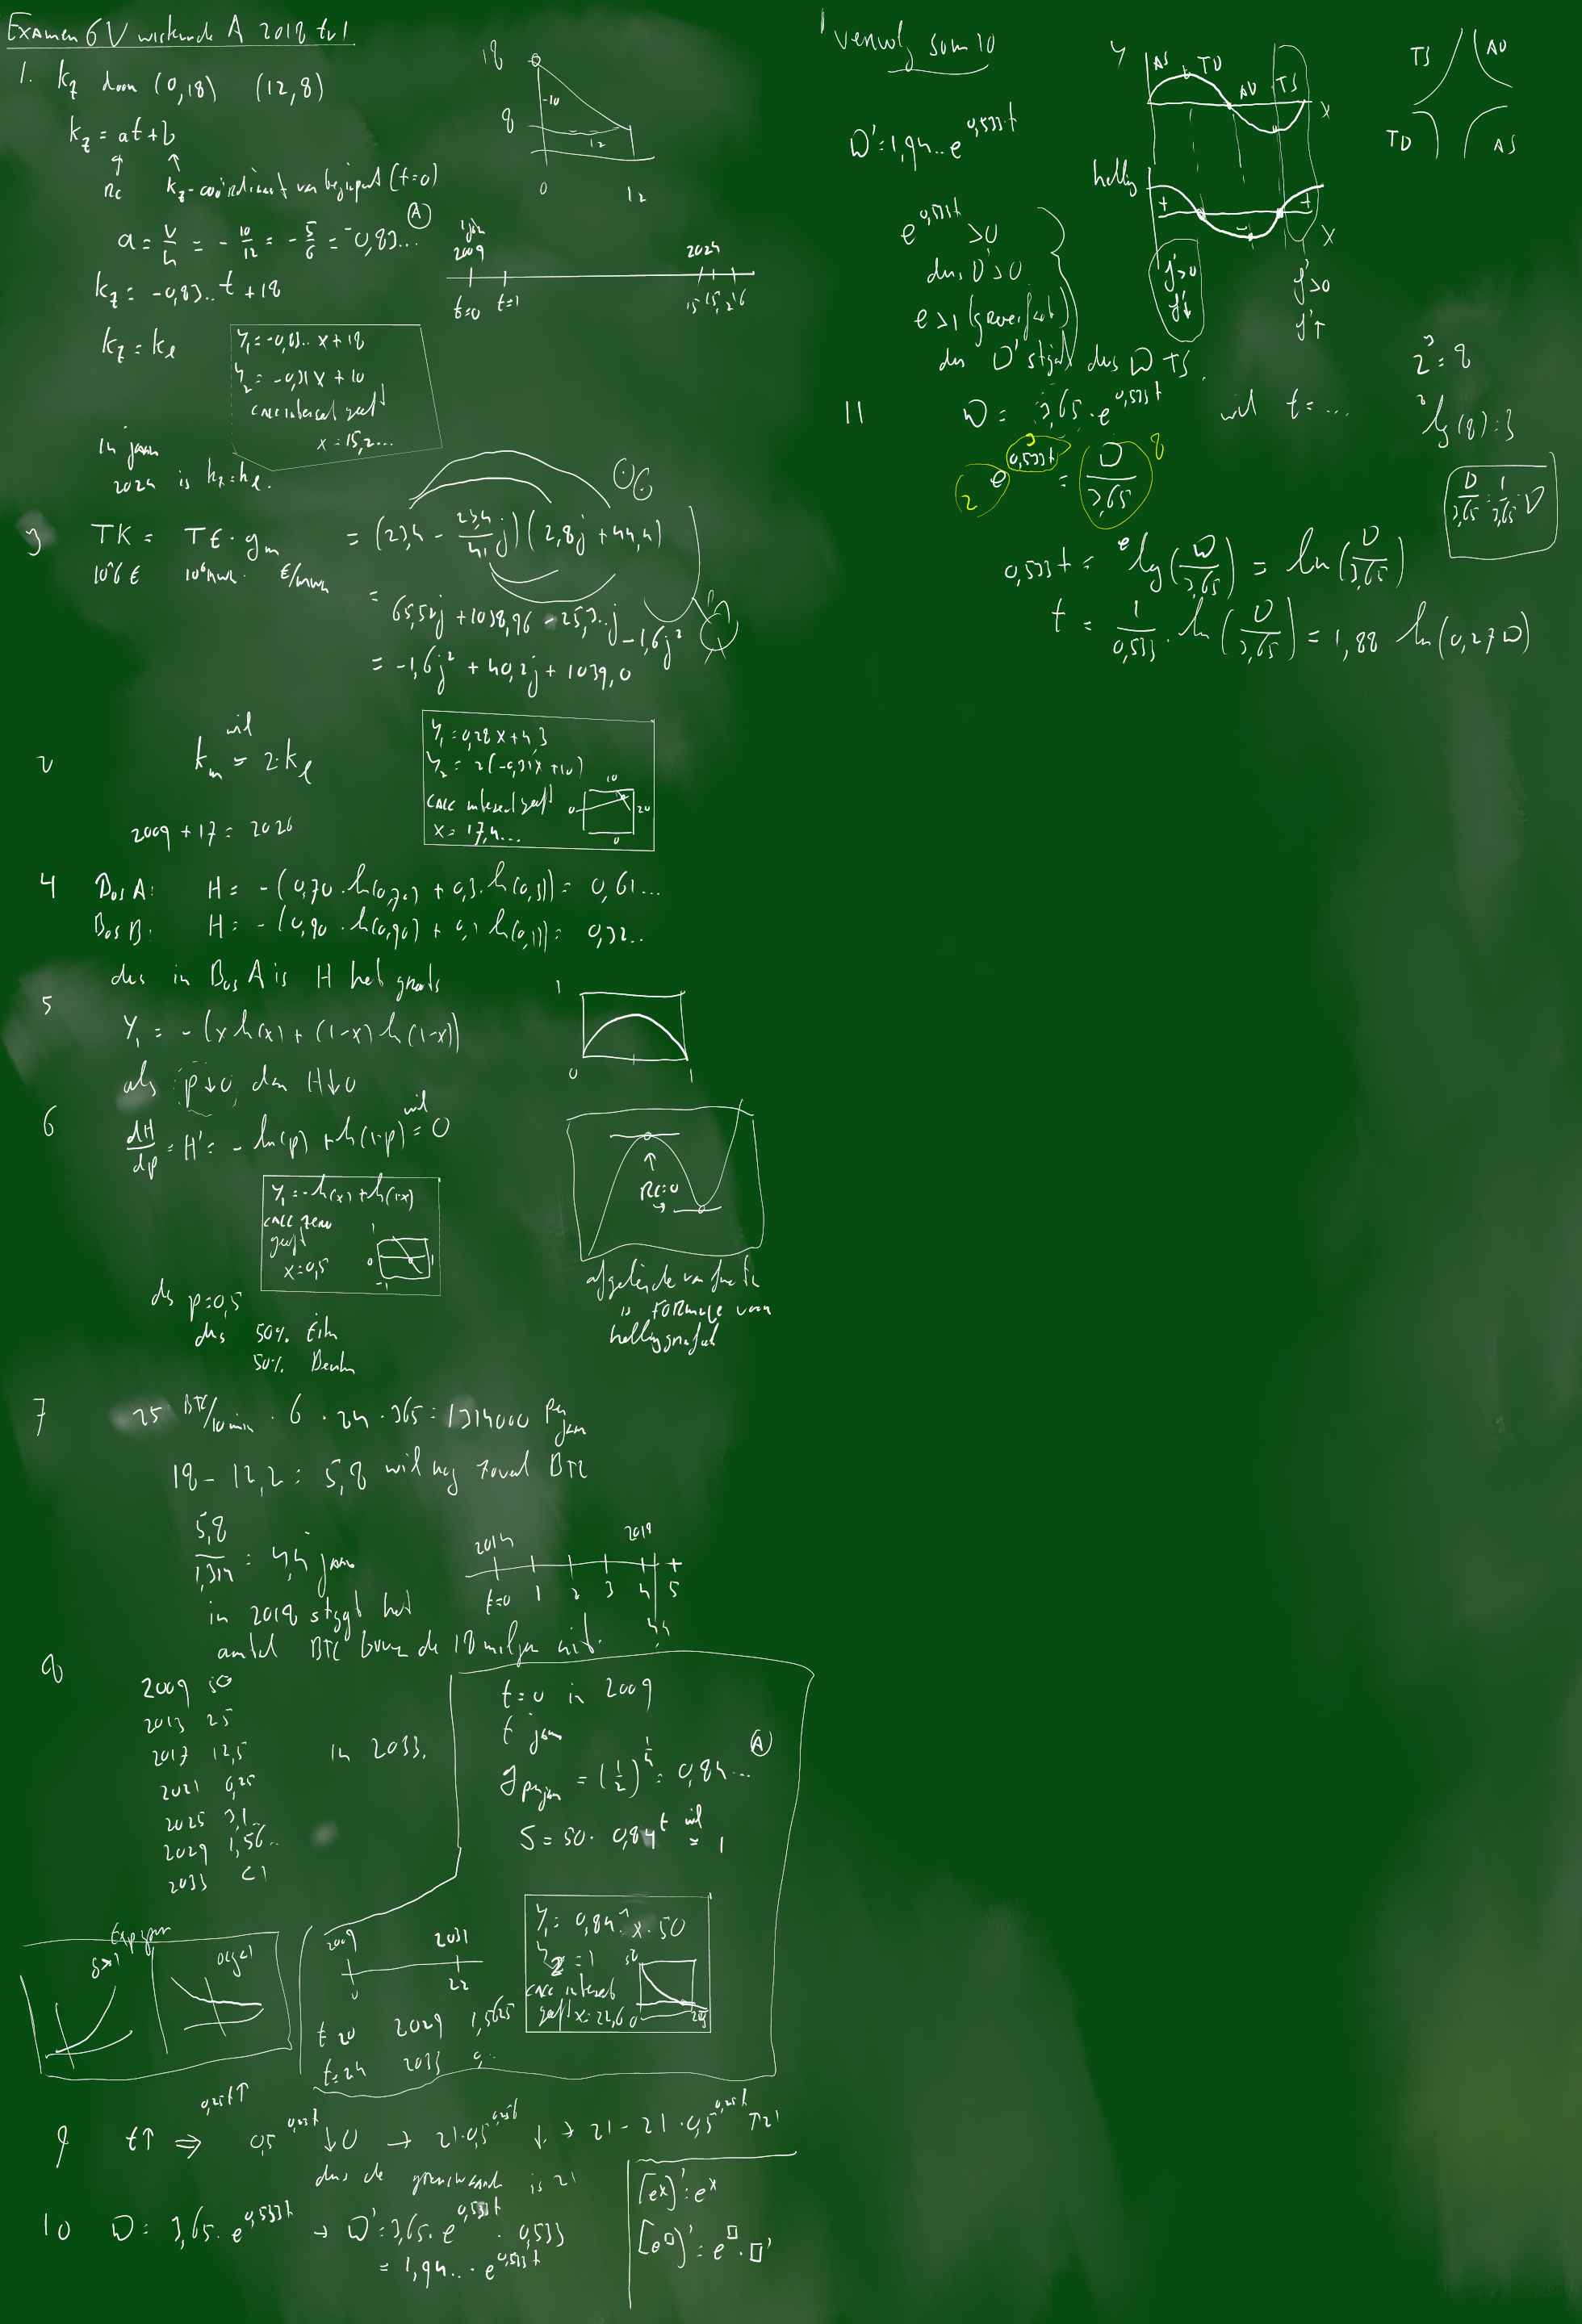 Examen 6V wiskunde A 2018 tv1
1. kz door (0,18) (12,8)
kz = at + b
rc kz-coördinaat van beginpunt (t=0)
a = v/h = -10/12 = -5/6 = -0,83... (A)
kz = -0,83..t + 18
kz = kl
Y1 = -0,83.. x + 18
Y2 = -0,31x + 10
calc intersect geeft
x = 15,2...
in jaar
2024 is kz = kl.
18
-10
8
12
0 12
1 jan
2009 2024
t=0 t=1 15 15,2 16
3 TK = T€ · gm = (23,4 - 23,4/41 j)(2,8j + 44,4)
10^6 € 10^6 MWh · €/MWh
= 65,52j + 1038,96 - 25,3..j - 1,6j²
= -1,6j² + 40,2j + 1039,0
2 km = 2·kl
wil
2009 + 17 = 2026
Y1 = 0,28x + 4,3
Y2 = 2(-0,31x + 10)
calc intersect geeft
x = 17,4...
10
0 20
0
4 Bos A: H = -(0,70·ln(0,70) + 0,3·ln(0,3)) = 0,61...
Bos B: H = -(0,90·ln(0,90) + 0,1 ln(0,1)) = 0,32..
dus in Bos A is H het grootst
5 Y1 = -(x ln(x) + (1-x) ln(1-x))
als p↓0, dan H↓0
1
0 1
6 dH/dp = H' = -ln(p) + ln(1-p) = 0
wil
Y1 = -ln(x) + ln(1-x)
calc zero
geeft
x = 0,5
1
0 1
-1
dus p = 0,5
dus 50% Eik
50%
rc=0
afgeleide van functie
is formule voor
hellinggrafiek
7 25 BTC/10 min · 6 · 24 · 365 = 1314000 per jaar
18 - 12,2 = 5,8 wil nog zoveel BTC
5,8/1,314 = 4,4 jaar
in 2018 stijgt het
aantal BTC boven de 18 miljoen uit.
2014 2019
t=0 1 2 3 4 5
4,4
8
2009 50
2013 25
2017 12,5
2021 6,25
2025 3,1..
2029 1,56..
2033 <1
in 2033.
t=0 in 2009
t jaar
g per jaar = (1/2)^(1/4) = 0,84... (A)
S = 50 · 0,84^t = 1
wil
Y1 = 0,84..^x · 50
Y2 = 1
calc intersect
geeft x = 22,6
50
0
2009 2031
0 22
t=20 2029 1,5625
t=24 2033 0,..
g>1 0<g<1
9 t↑ ⇒ 0,25t↑ 0,5^0,25t ↓0 → 21·0,5^0,25t ↓ → 21 - 21·0,5^0,25t ↑21
dus de grenswaarde is 21
10 D = 3,65·e^0,533t → D' = 3,65·e^0,533t · 0,533
= 1,94..·e^0,533t
[e^x]' = e^x
[e^□]' = e^□ · □'
vervolg som 10
D' = 1,94..e^0,533t
e^0,533t > 0
dus D' > 0
e > 1 (groeifact)
dus D' stijgt dus D TS.
y
AS TD AD TS
x
helling
+ - +
x
f'>0
f'↓
f'>0
f'↑
TS AD
TD AS
11 D = 3,65·e^0,533t wil t = ...
e^0,533t = D/3,65
2 3 8
0,533t = ᵉlog(D/3,65) = ln(D/3,65)
t = 1/0,533 · ln(D/3,65) = 1,88 ln(0,27D)
2³ = 8
²log(8) = 3
D/3,65 = 1/3,65 · D